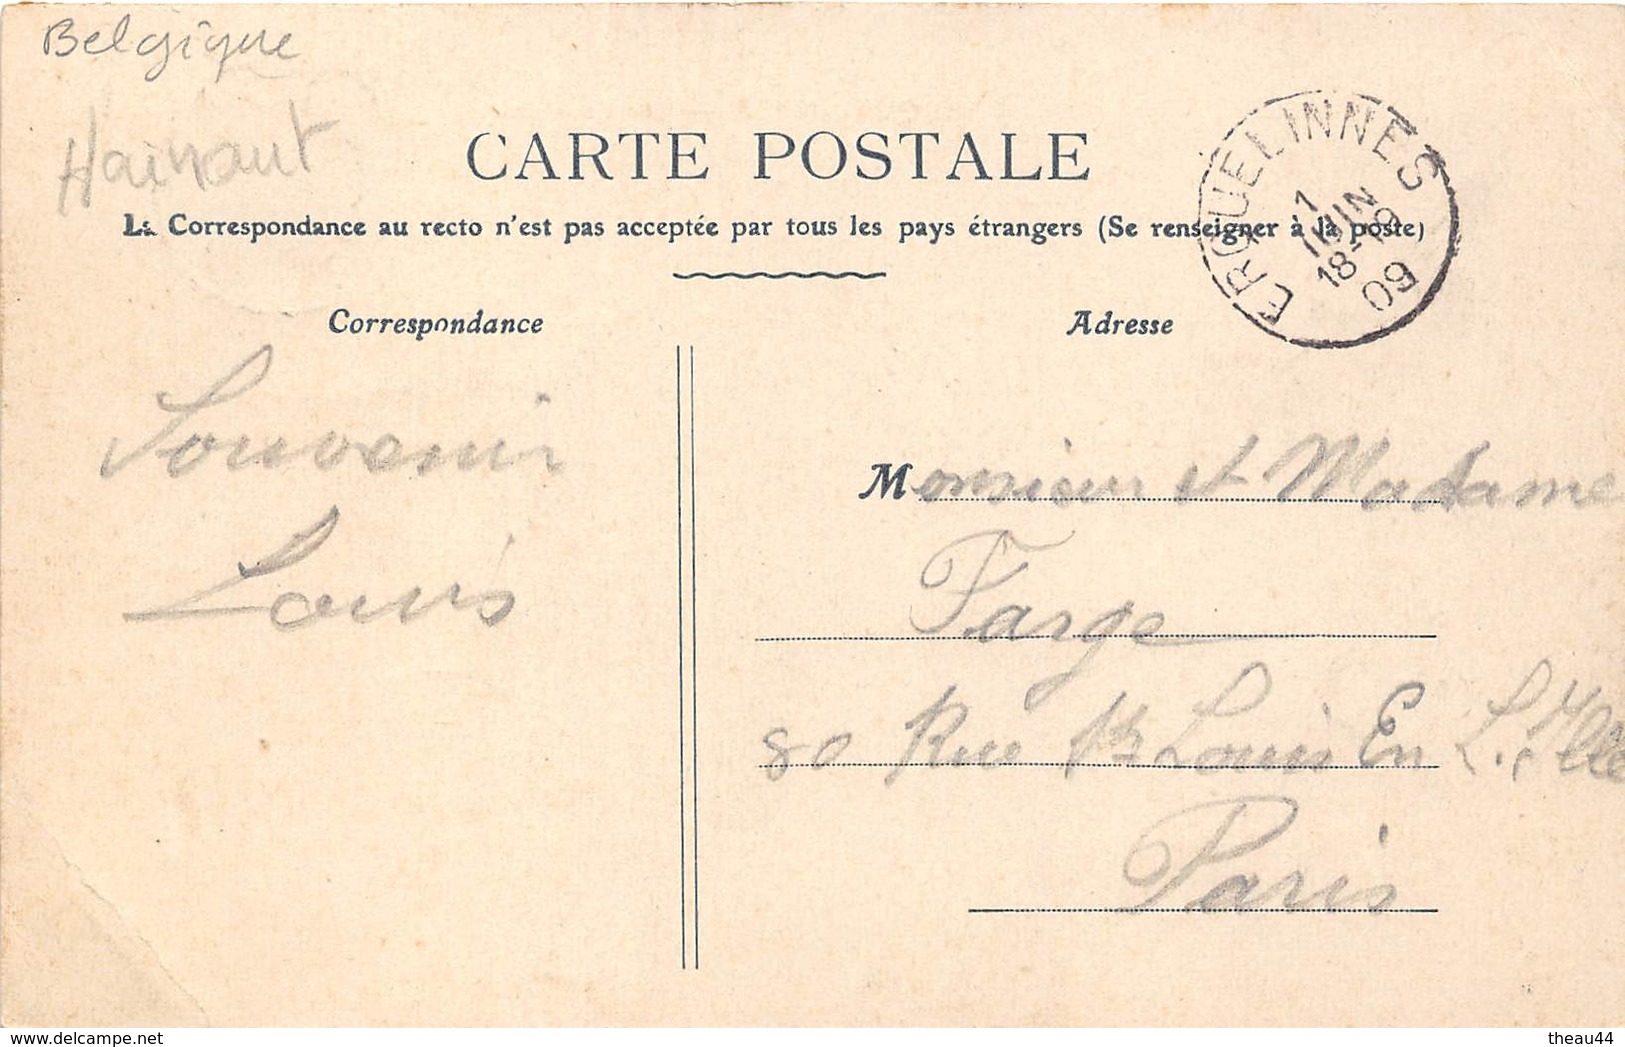 Belgique
Hainaut
CARTE POSTALE
La Correspondance au recto n'est pas acceptée par tous les pays étrangers (Se renseigner à la poste)
ERQUELINNES
1
JUIN
18-19
09
Correspondance
Adresse
Souvenir
Louis
Monsieur et Madame
Farge
80 Rue St Louis En L'Ille
Paris
www.delcampe.net
theau44